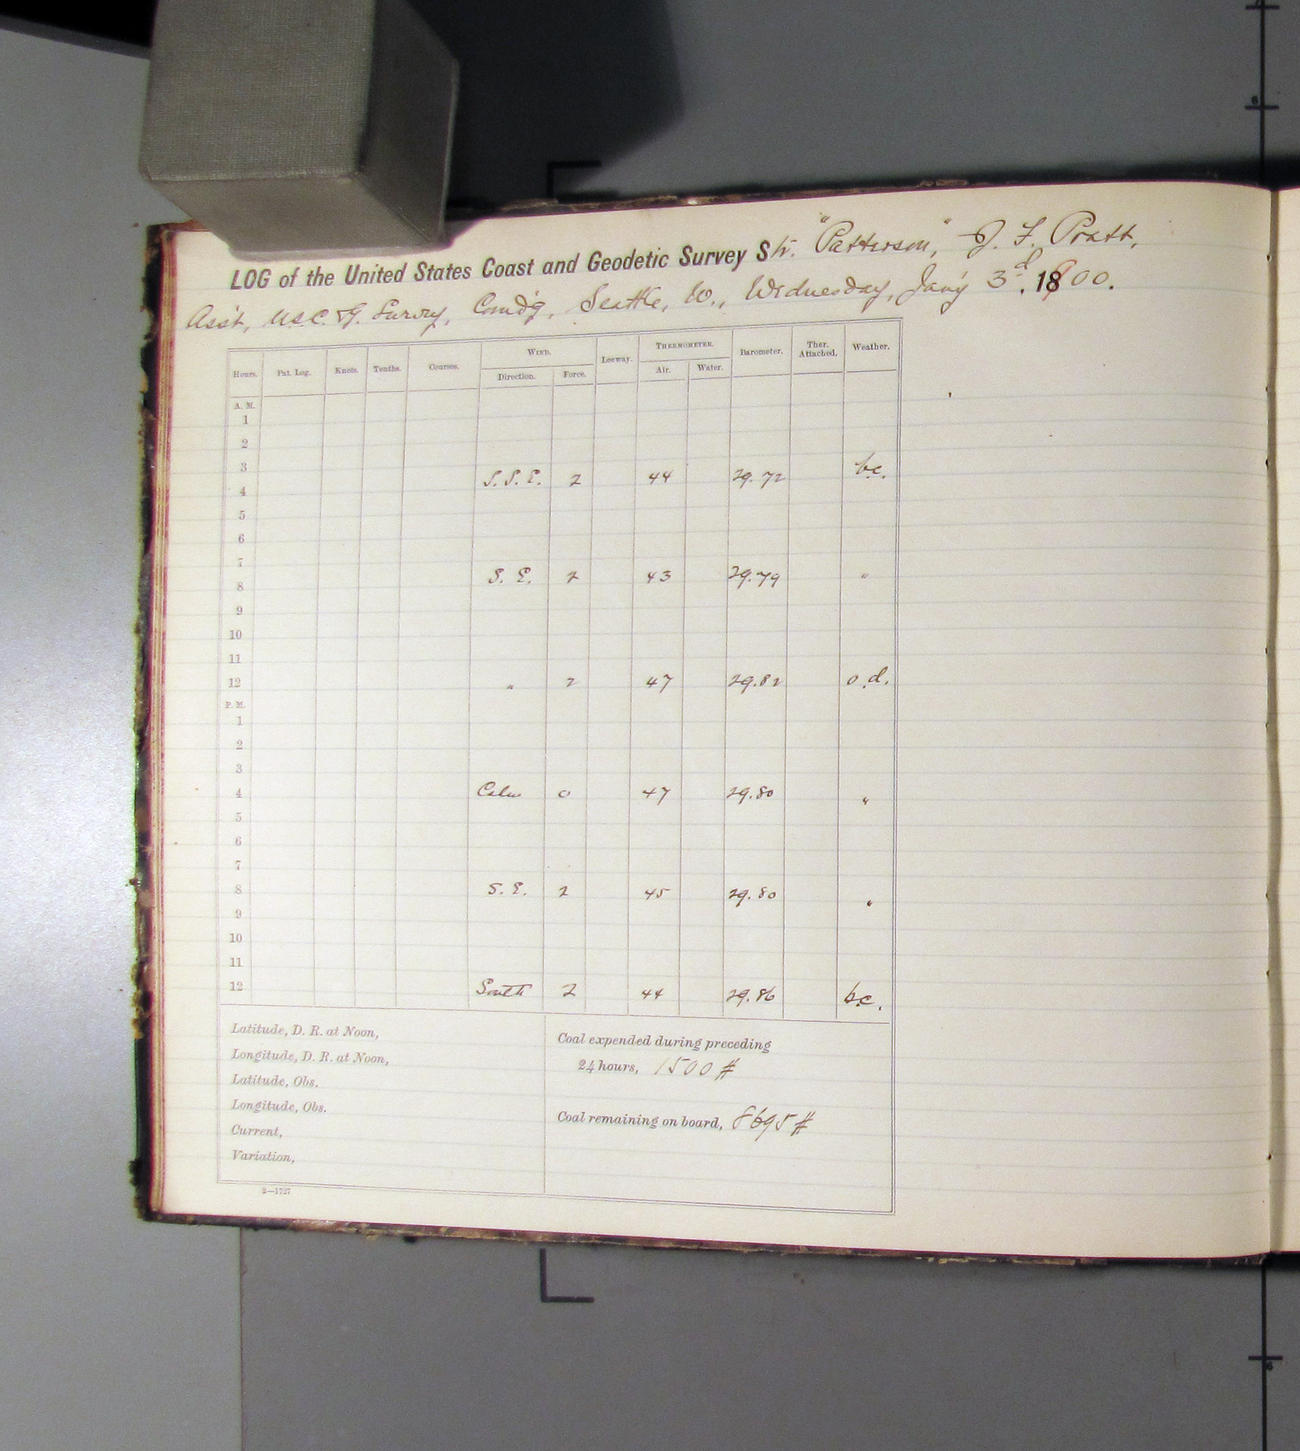 LOG of the United States Coast and Geodetic Survey Str. "Patterson," J. F. Pratt,
Ass't, U.S.C. & G. Survey, Comd'g, Seattle, W., Wednesday, Jan'y 3d, 1900.
Hours. Pat. Log. Knots. Tenths. Courses. WIND. Direction. Force. Leeway. THERMOMETER. Air. Water. Barometer. Ther. Attached. Weather.
A. M.
1
2
3
4 S. S. E. 2 44 29.72 b.c.
5
6
7
8 S. E. 2 43 29.79 "
9
10
11
12 " 2 47 29.82 o.d.
P. M.
1
2
3
4 Calm 0 47 29.80 "
5
6
7
8 S. E. 2 45 29.80 "
9
10
11
12 South 2 44 29.86 b.c.
Latitude, D. R. at Noon,
Longitude, D. R. at Noon,
Latitude, Obs.
Longitude, Obs.
Current,
Variation,
Coal expended during preceding
24 hours, 1500 #
Coal remaining on board, 8695 #
2—1727
6
6